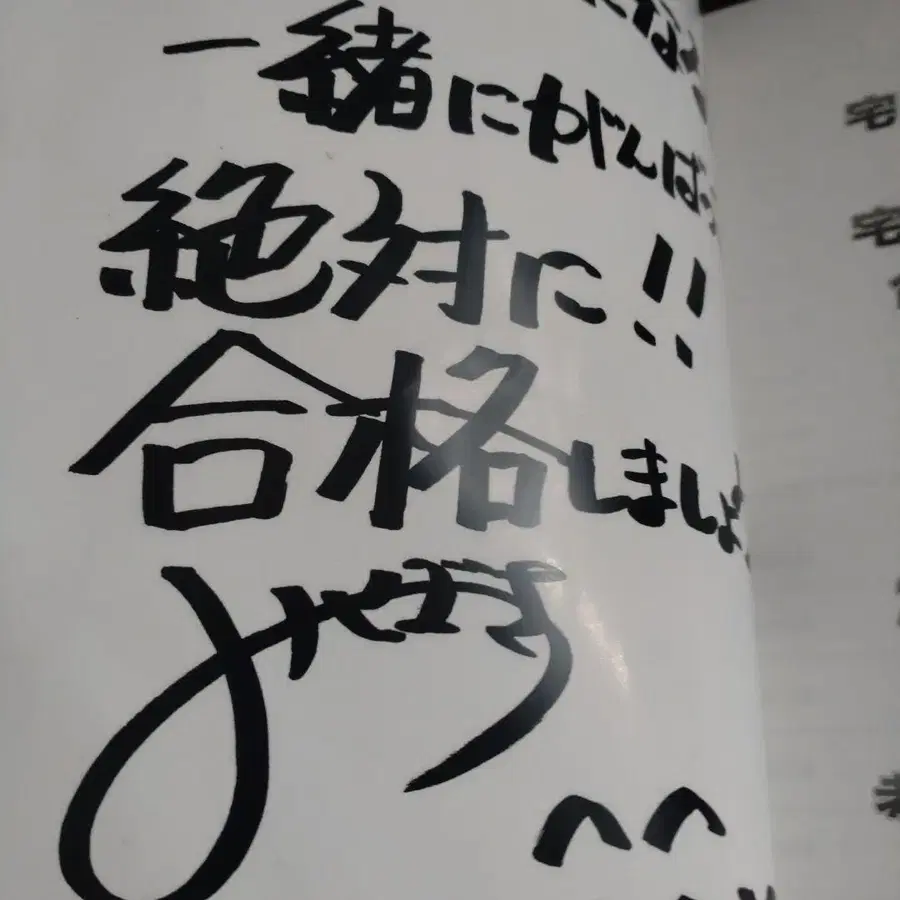 一緒にがんばっ
絶対に!!
合格しましょ
^^
宅
宅